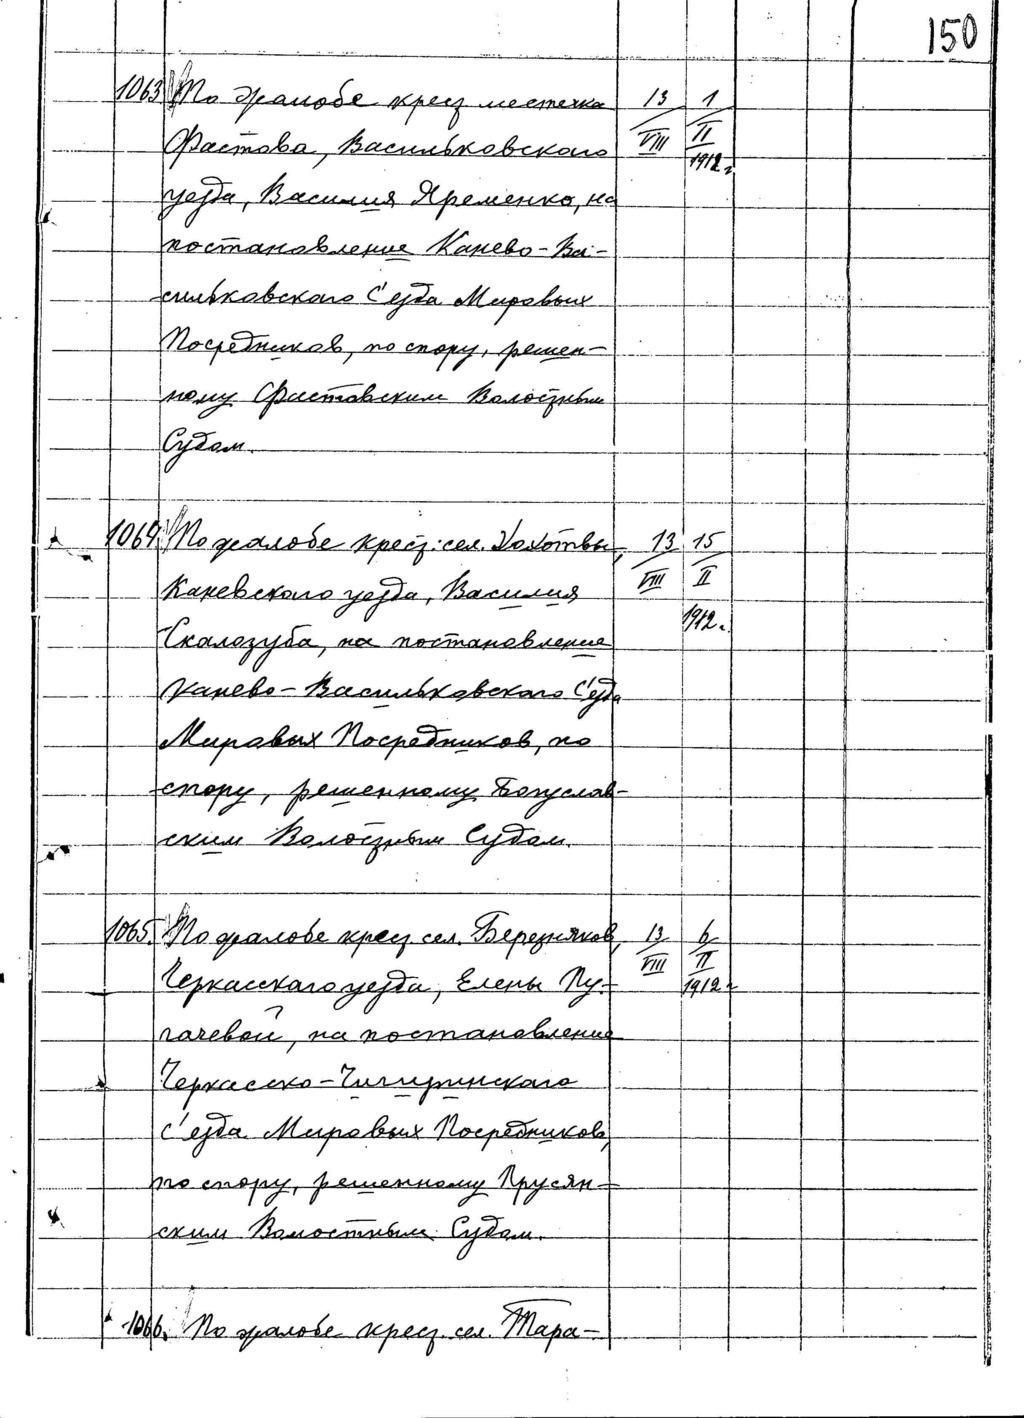 150
1063 По жалобе крест местечка 13/VIII 1/II 1912 г.
Фастова, Васильковского
уезда, Василия Яременко, на
постановление Канево-Ва-
сильковского С'езда Мировых
Посредников, по спору, решен-
ному Фастовским Волостным
Судом.
1064. По жалобе крест: сел. Хохотвы, 13/VIII 15/II 1912 г.
Каневского уезда, Василия
Скалозуба, на постановление
Канево-Васильковского С'езда
Мировых Посредников, по
спору, решенному Богуслав-
ским Волостным Судом.
1065. По жалобе крест. сел. Березняков, 13/VIII 6/II 1912 г.
Черкасского уезда, Елены Пу-
гачевой, на постановление
Черкасско-Чигиринского
С'езда Мировых Посредников,
по спору, решенному Прусян-
ским Волостным Судом.
1066. По жалобе крест. сел. Тара-